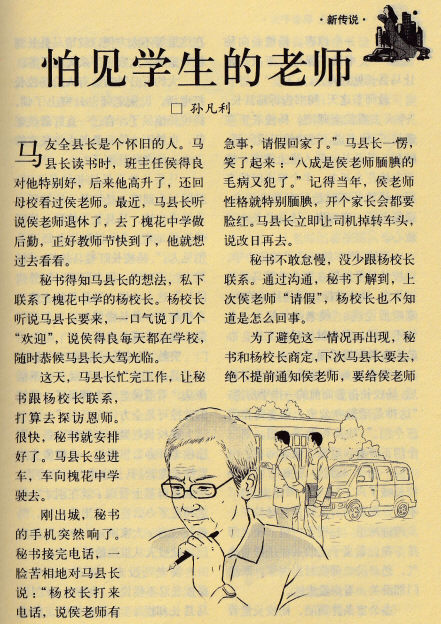 ·新传说·
怕见学生的老师
□孙凡利
马友全县长是个怀旧的人。马
县长读书时，班主任侯得良
对他特别好，后来他高升了，还回
母校看过侯老师。最近，马县长听
说侯老师退休了，去了槐花中学做
后勤，正好教师节快到了，他就想
过去看看。
秘书得知马县长的想法，私下
联系了槐花中学的杨校长。杨校长
听说马县长要来，一口气说了几个
“欢迎”，说侯得良每天都在学校，
随时恭候马县长大驾光临。
这天，马县长忙完工作，让秘
书跟杨校长联系，
打算去探访恩师。
很快，秘书就安排
好了，马县长坐进
车，车向槐花中学
驶去。
刚出城，秘书
的手机突然响了。
秘书接完电话，
脸苦相地对马县长
说：“杨校长打来
电话，说侯老师有
急事，请假回家了。”马县长一愣，
笑了起来：“八成是侯老师腼腆的
毛病又犯了。”记得当年，侯老师
性格就特别腼腆，开个家长会都要
脸红。马县长立即让司机掉转车头，
说改日再去。
秘书不敢怠慢，没少跟杨校长
联系。通过沟通，秘书了解到，上
次侯老师“请假”，杨校长也不知
道是怎么回事。
为了避免这一情况再出现，秘
书和杨校长商定，下次马县长要去，
绝不提前通知侯老师，要给侯老师